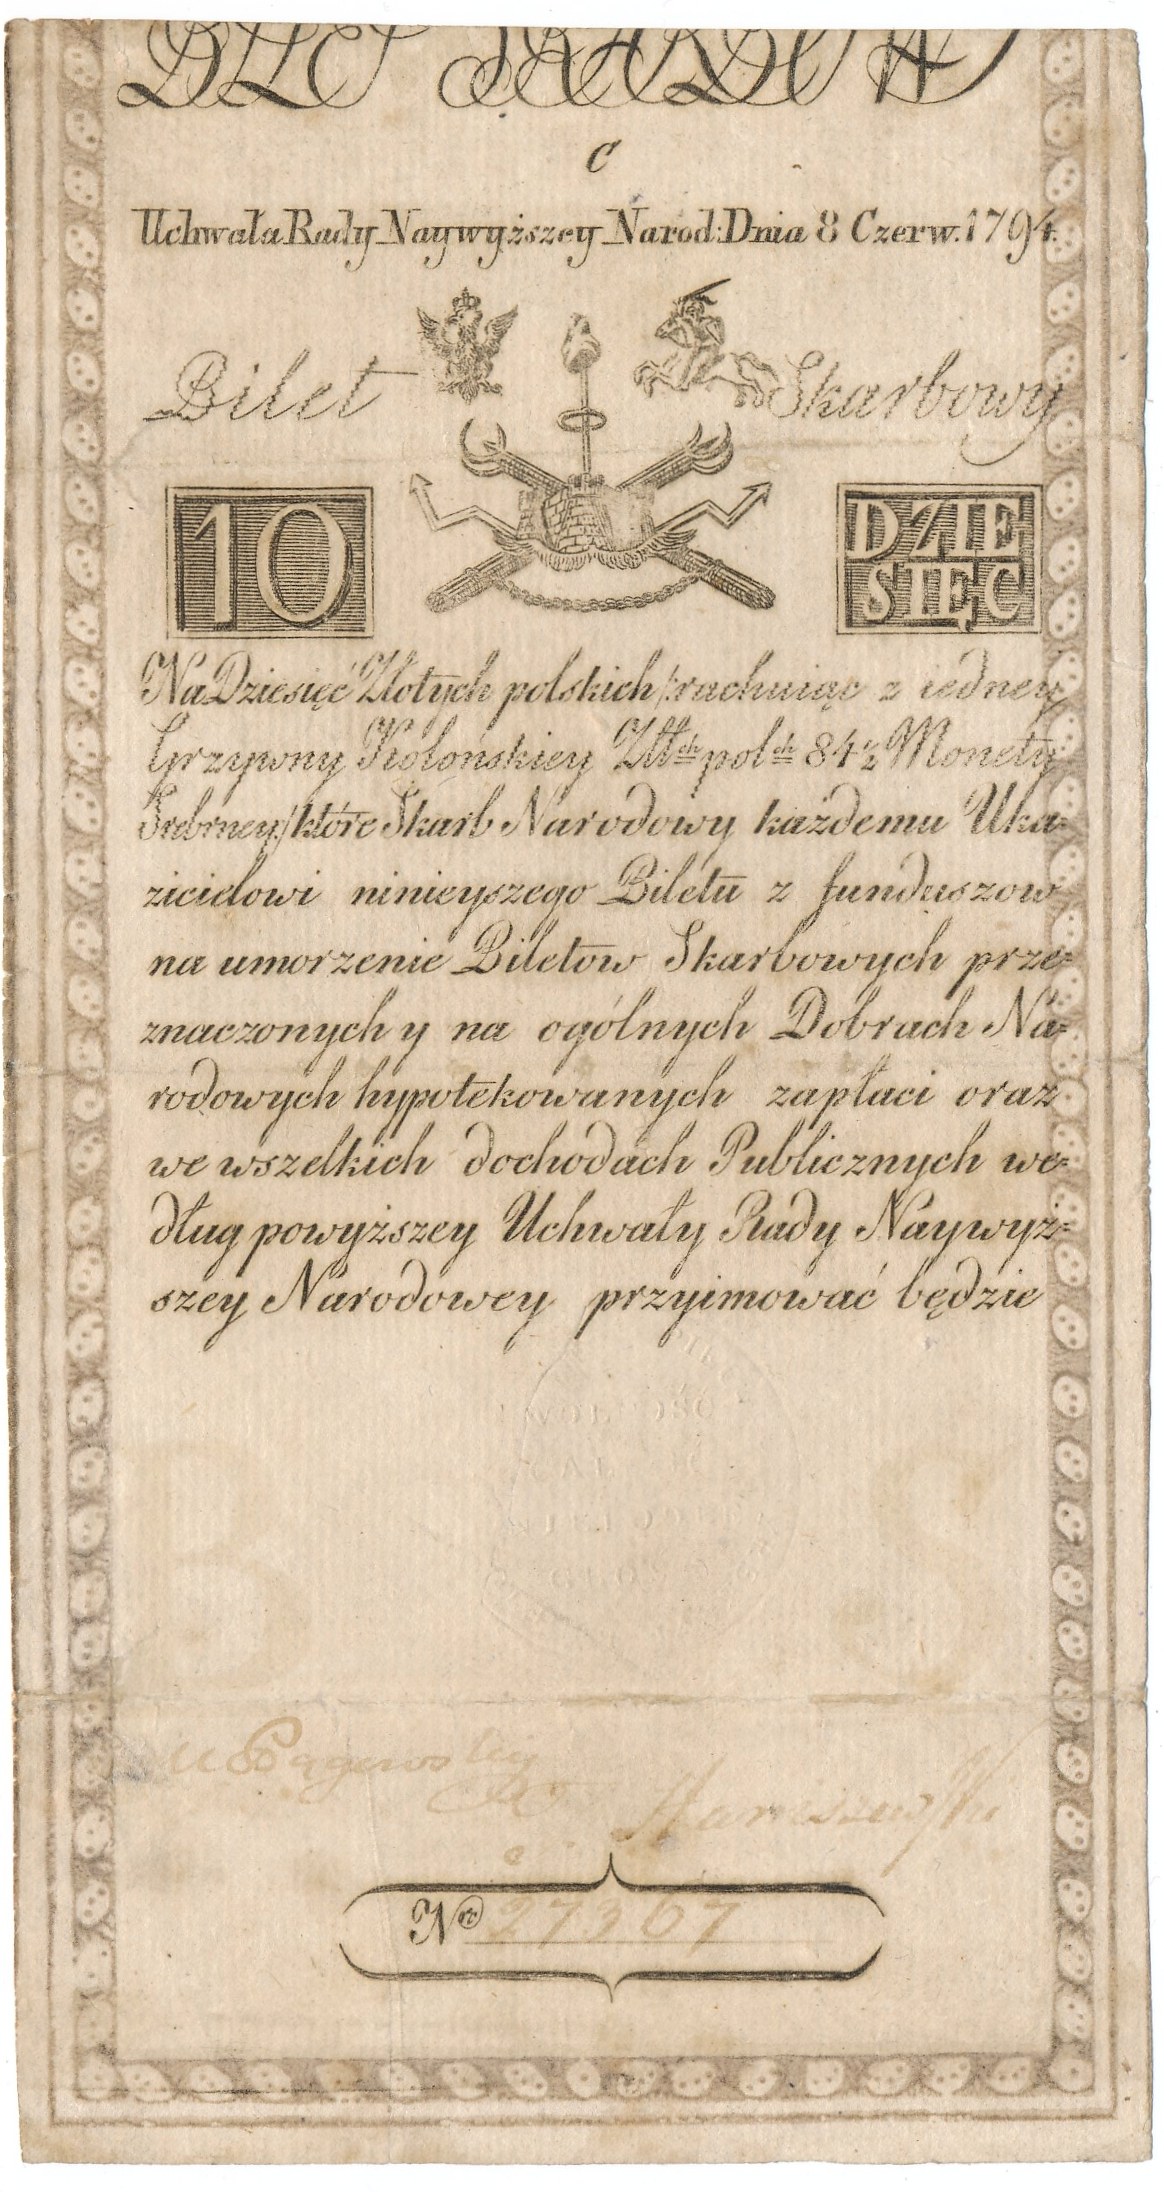 BILET SKARBOWY
C
Uchwała Rady Naywyższey Narod: Dnia 8 Czerw. 1794.
Bilet Skarbowy
10
DZIE
SIĘĆ
Na Dziesięć Złotych polskich /:rachuiąc z iedney
Grzywny Kolońskiey Złł.ch pol.ch 84 1/2 Monety
Srebrney:/ które Skarb Narodowy każdemu Uka=
zicielowi ninieyszego Biletu z funduszow
na umorzenie Biletow Skarbowych prze=
znaczonych y na ogólnych Dobrach Na=
rodowych hypotekowanych zapłaci oraz
we wszelkich dochodach Publicznych we=
dług powyższey Uchwały Rady Naywyż=
szey Narodowey przyimować będzie
WOLNOSC
CAŁOSC
c
Nro 27367